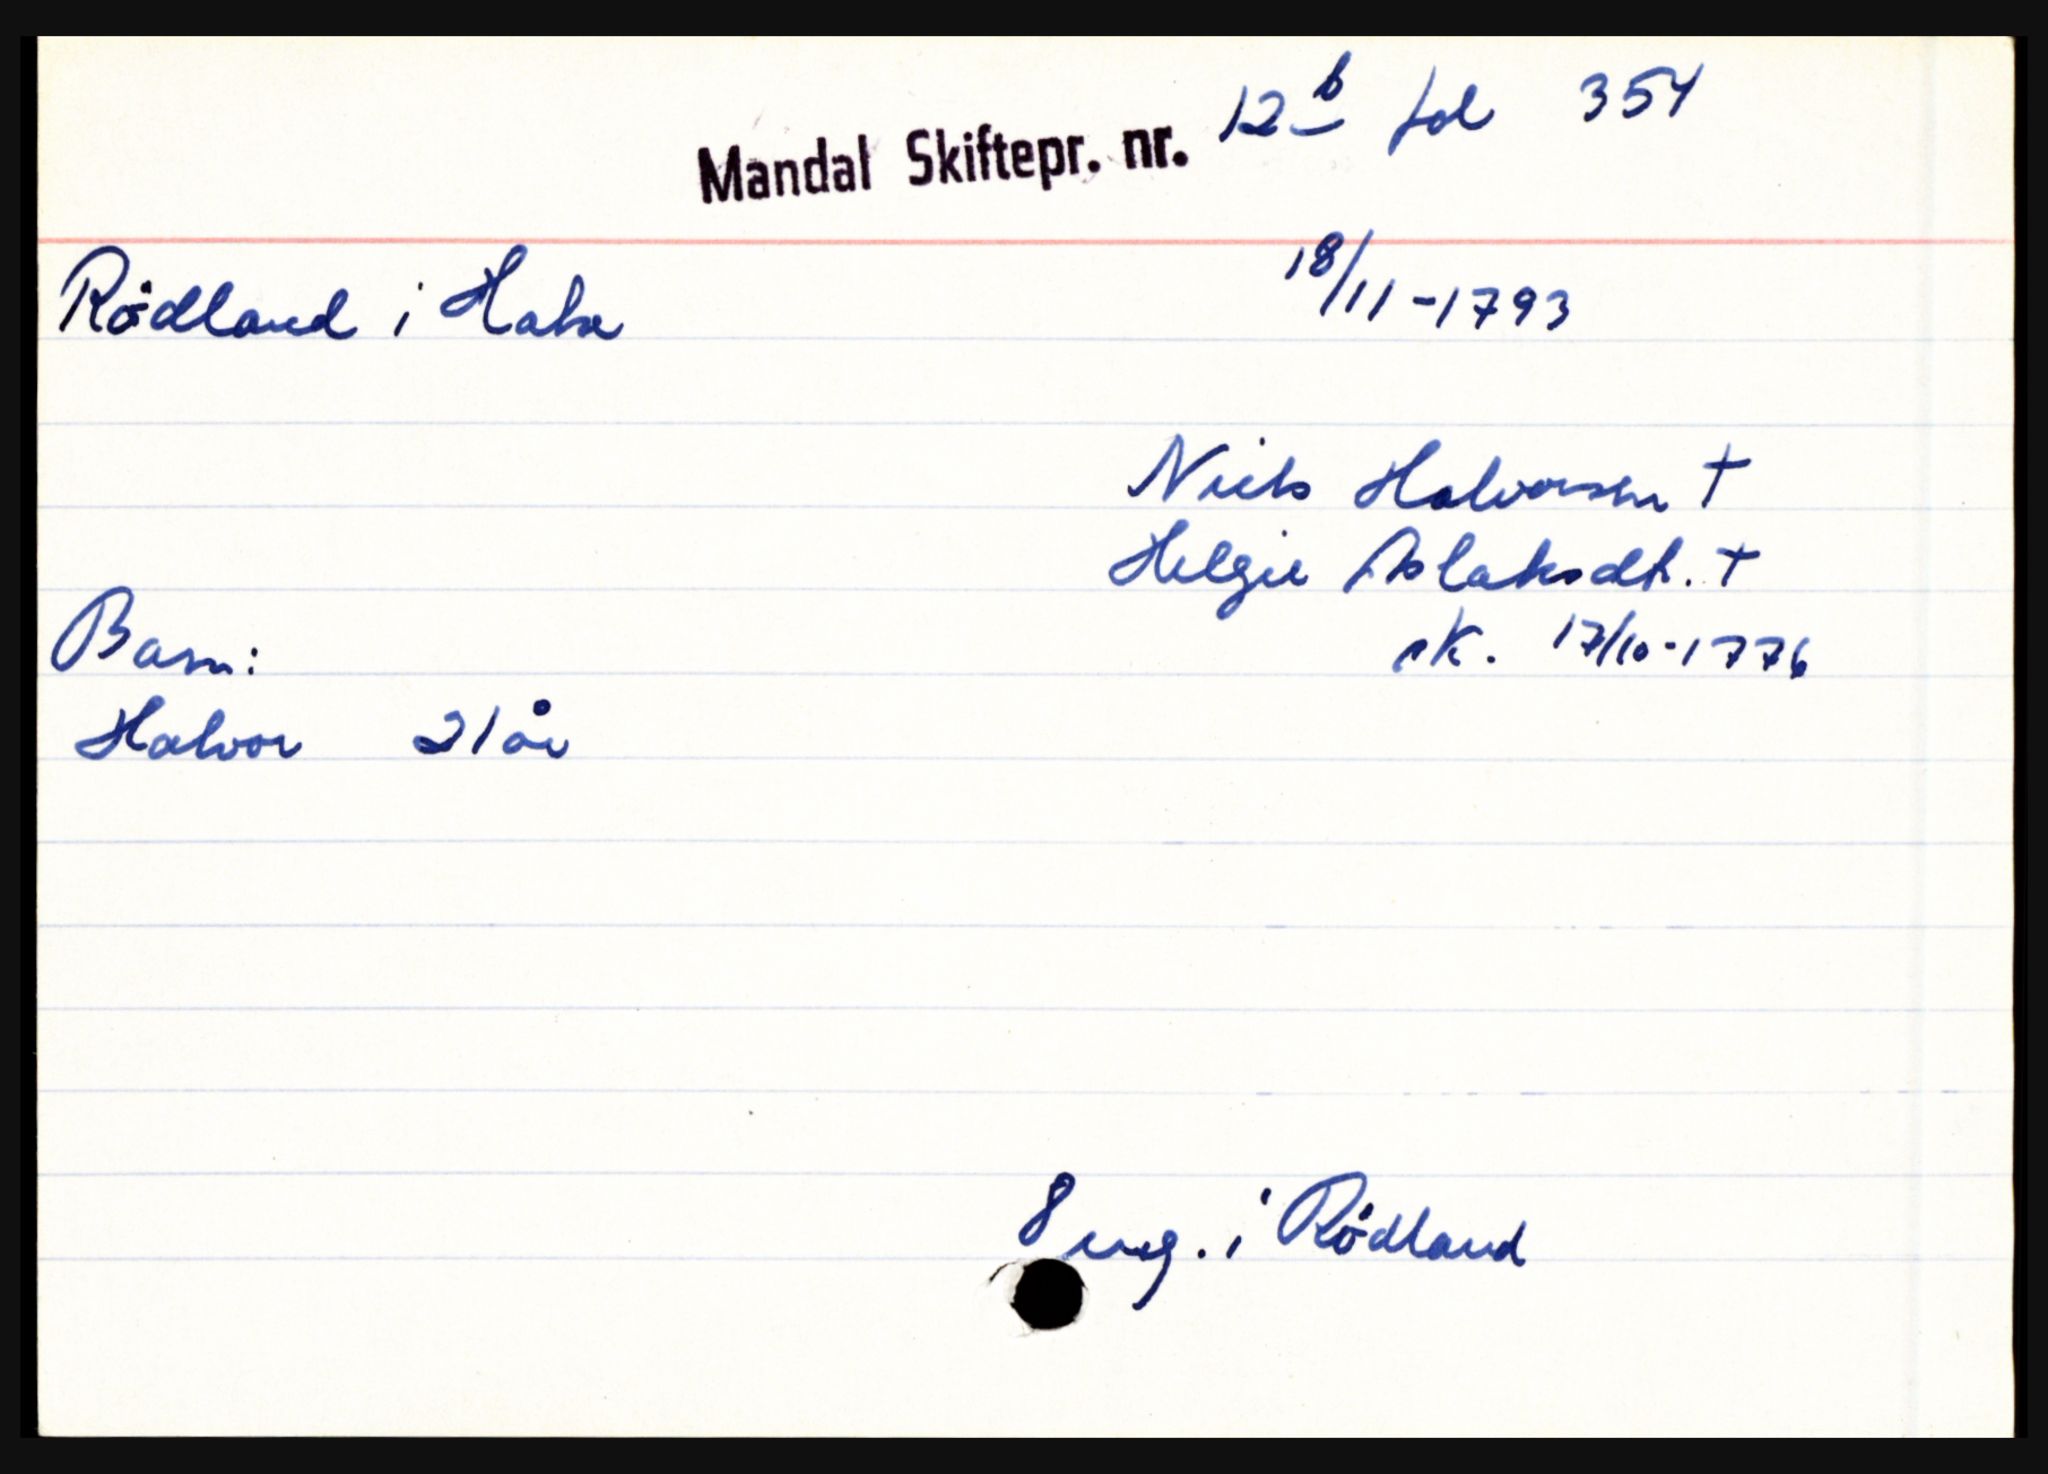 Mandal Skiftepr. nr. 12b fol 354
Rödland i Halse 18/11-1793
Niels Halvorsen †
Helgie Aslaksdtr. †
sk. 17/10-1776
Barn:
Halvor 21 år
8 eng. i Rödland